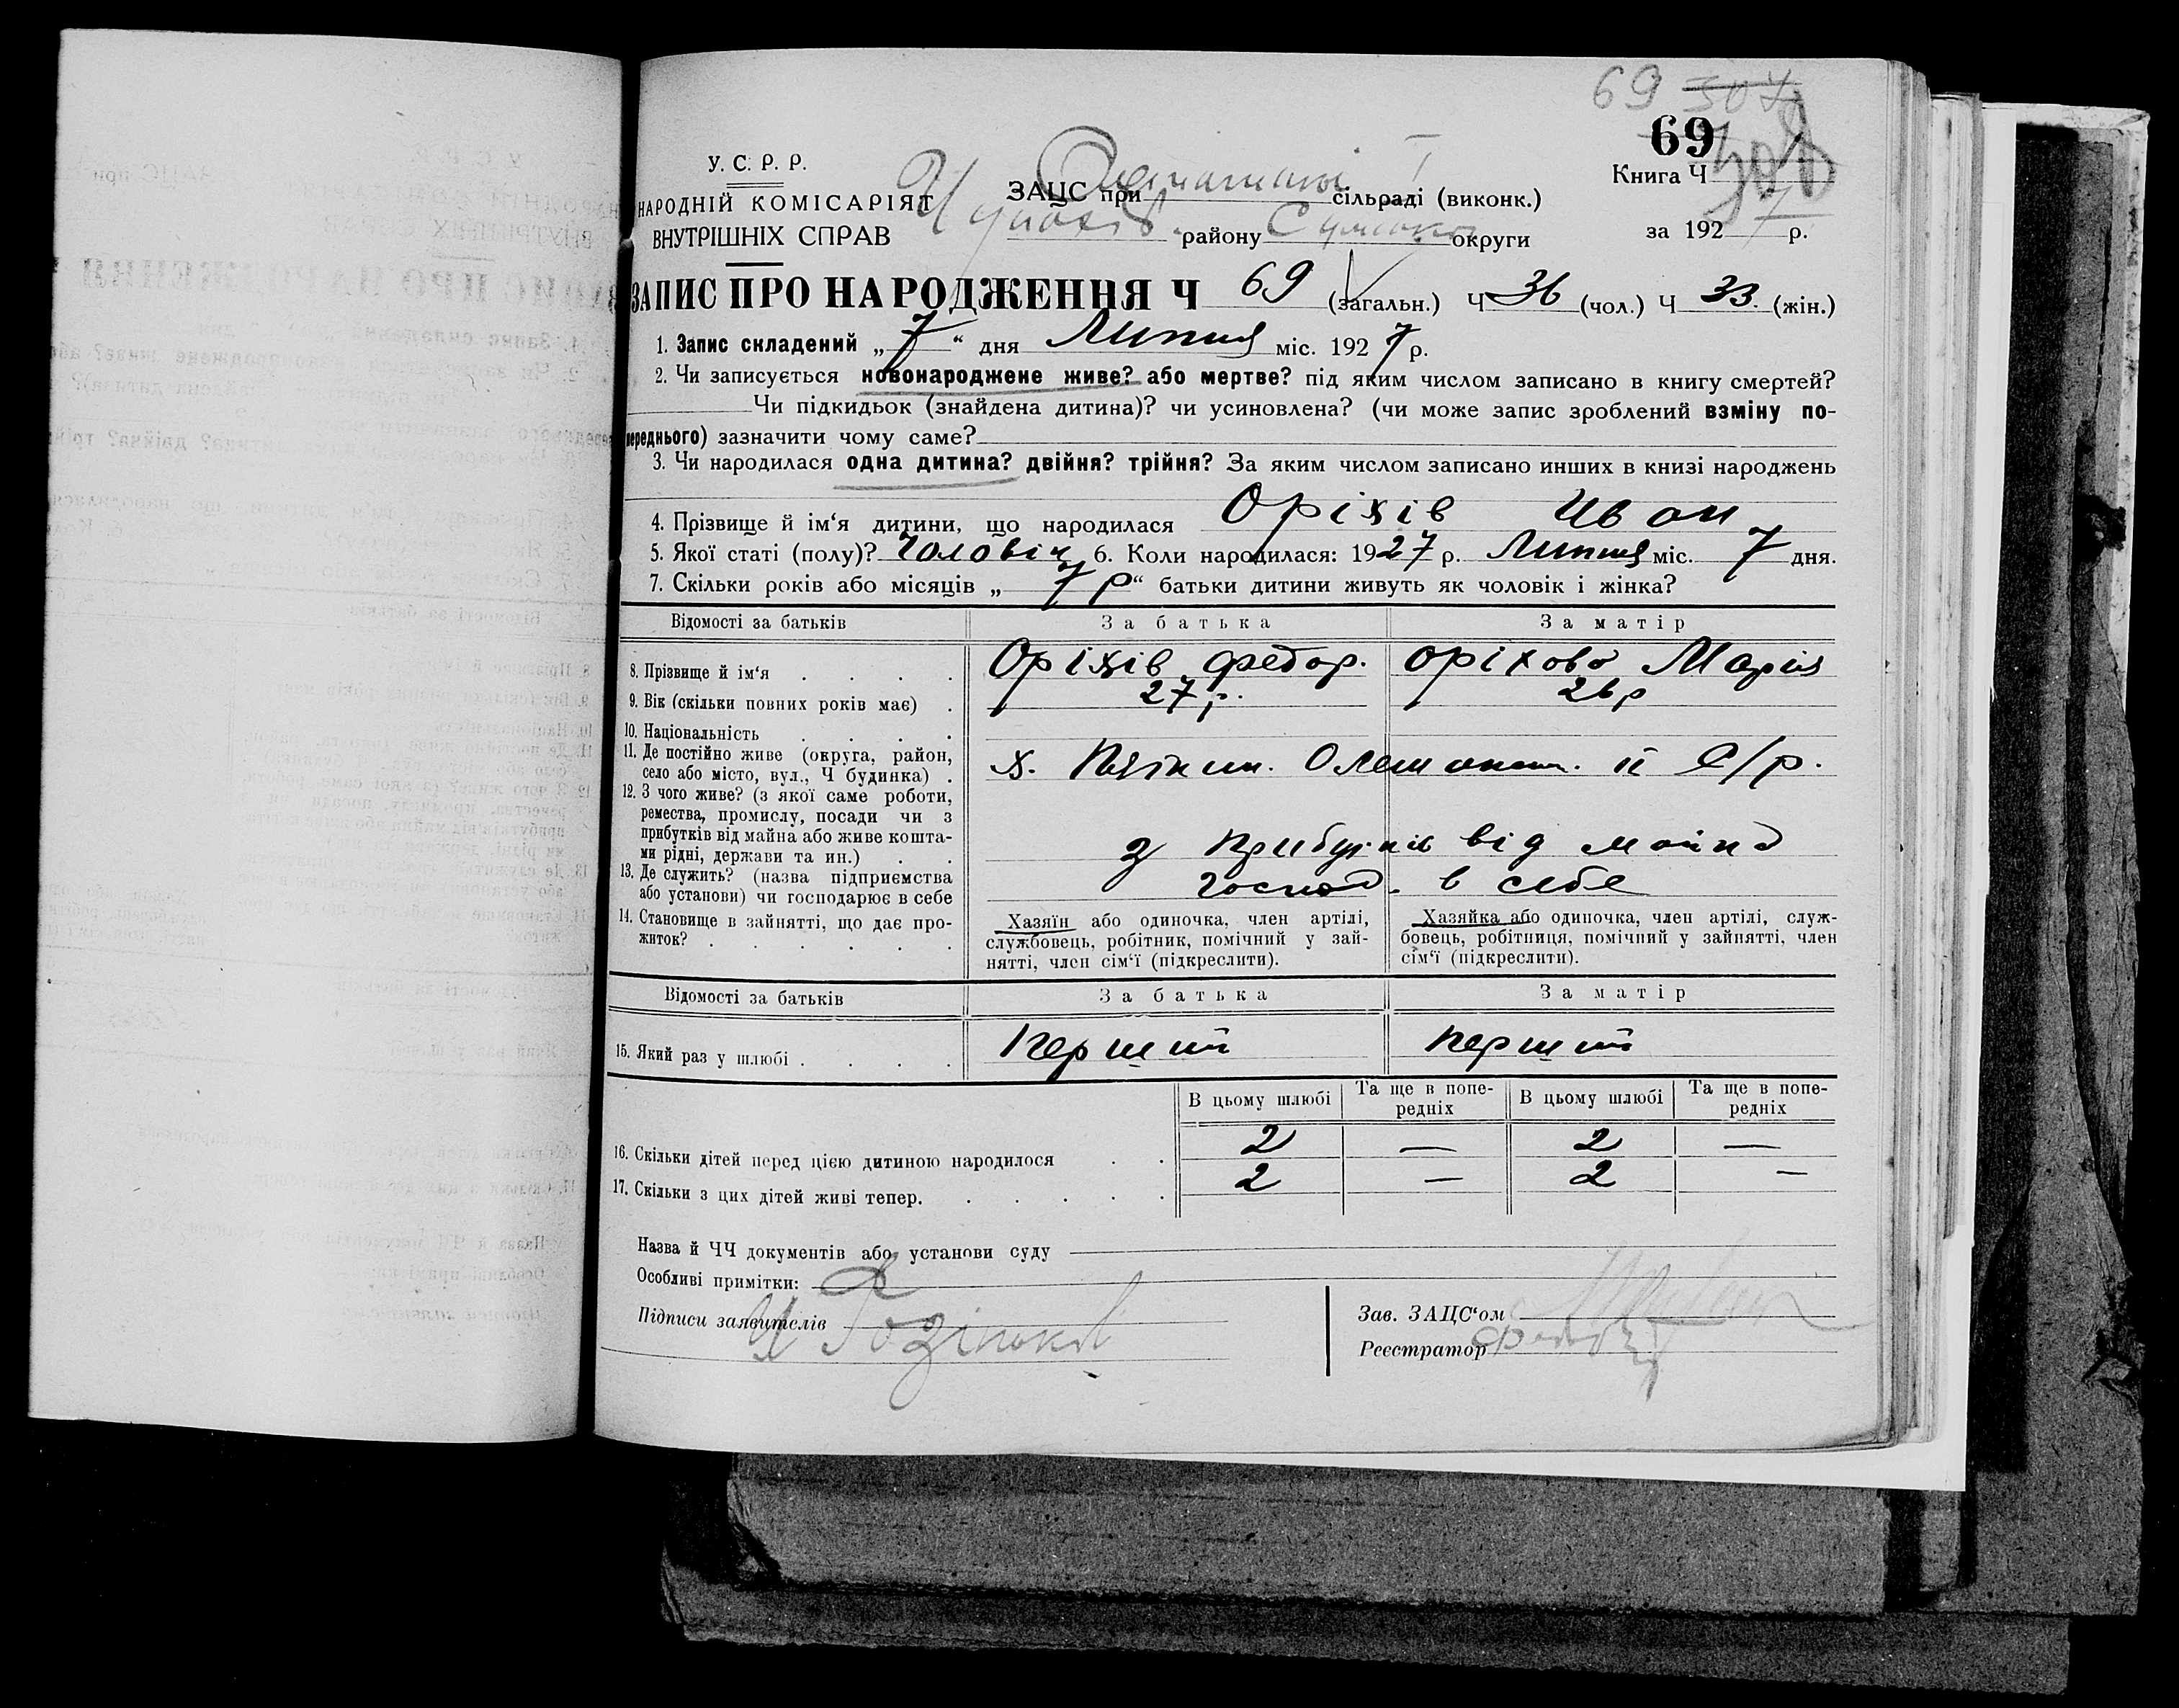 69 307
69
308
У. С. Р. Р.
НАРОДНІЙ КОМІСАРІЯТ
ВНУТРІШНІХ СПРАВ
ЗАЦС при I сільраді (виконк.)
району Сумської округи
Книга Ч
за 1927 р.
ЗАПИС ПРО НАРОДЖЕННЯ Ч 69 (загальн.) Ч 36 (чол.) Ч 33. (жін.)
1. Запис складений „7“ дня Липня міс. 1927 р.
2. Чи записується новонароджене живе? або мертве? під яким числом записано в книгу смертей?
Чи підкидьок (знайдена дитина)? чи усиновлена? (чи може запис зроблений взміну по-
переднього) зазначити чому саме?
3. Чи народилася одна дитина? двійня? трійня? За яким числом записано инших в книзі народжень
4. Прізвище й ім‘я дитини, що народилася Оріхів Иван
5. Якої статі (полу)? Чоловіч 6. Коли народилася: 1927 р. Липня міс. 7 дня.
7. Скільки років або місяців „7 р“ батьки дитини живуть як чоловік і жінка?
Відомості за батьків За батька За матір
8. Прізвище й ім‘я Оріхів Федор. Оріхова Марія
9. Вік (скільки повних років має) 27 р. 26 р
10. Національність
11. Де постійно живе (округа, район,
село або місто, вул., Ч будинка) х. Олешанск. ІІ С/р.
12. З чого живе? (з якої саме роботи,
ремества, промислу, посади чи з
прибутків від майна або живе кошта-
ми рідні, держави та ин.) з прибутків від майна
13. Де служить? (назва підприємства
або установи) чи господарює в себе господ. в себе
14. Становище в зайнятті, що дає про-
житок?
Хазяїн або одиночка, член артілі,
службовець, робітник, помічний у зай-
нятті, член сім‘ї (підкреслити).
Хазяйка або одиночка, член артілі, служ-
бовець, робітниця, помічний у зайнятті, член
сім‘ї (підкреслити).
Відомості за батьків За батька За матір
15. Який раз у шлюбі Перший Перший
В цьому шлюбі Та ще в попе-
редніх В цьому шлюбі Та ще в попе-
редніх
16. Скільки дітей перед цією дитиною народилося 2 — 2 —
17. Скільки з цих дітей живі тепер. 2 — 2 —
Назва й ЧЧ документів або установи суду
Особливі примітки:
Підписи заявителів
Зав. ЗАЦС‘ом
Реєстратор